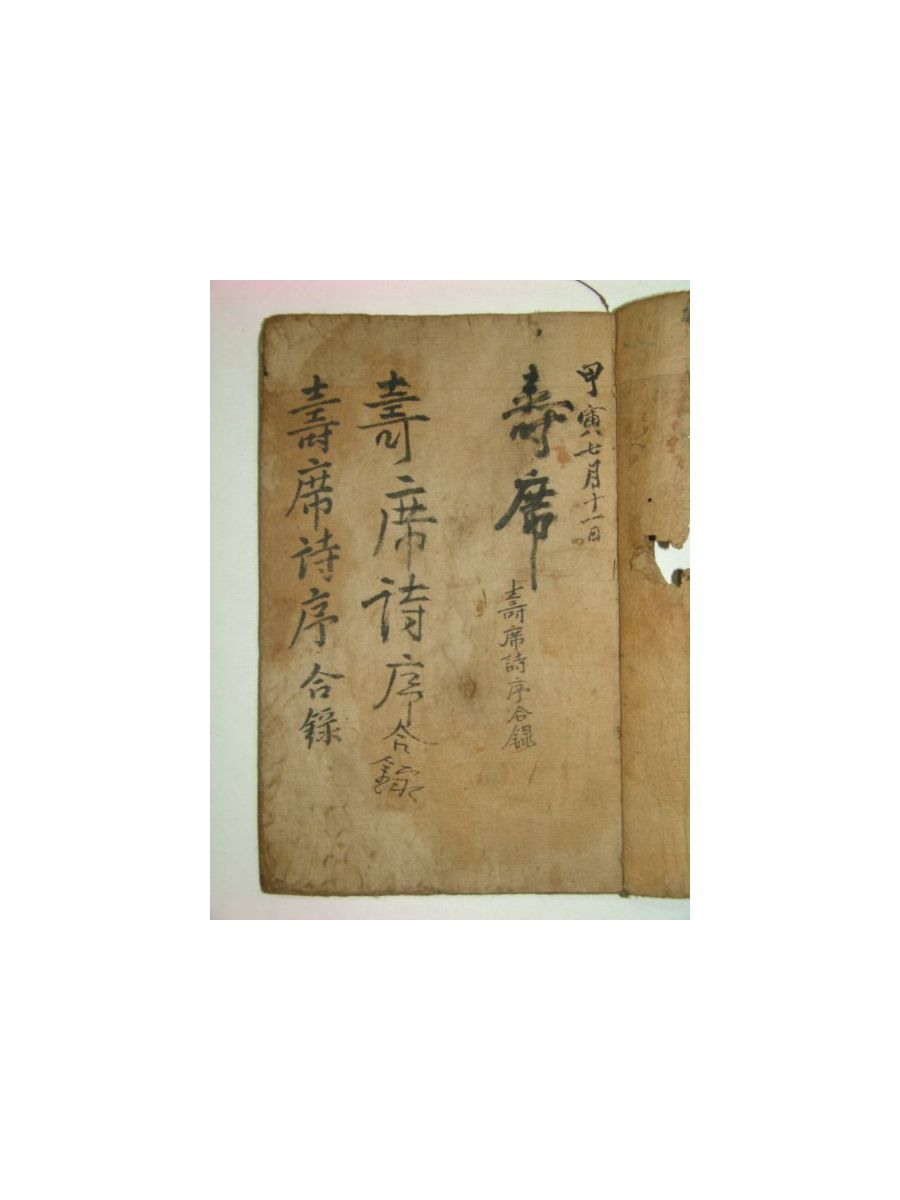 甲寅七月十一日
壽席
壽席詩序合録
壽席詩序合録
壽席詩序合録